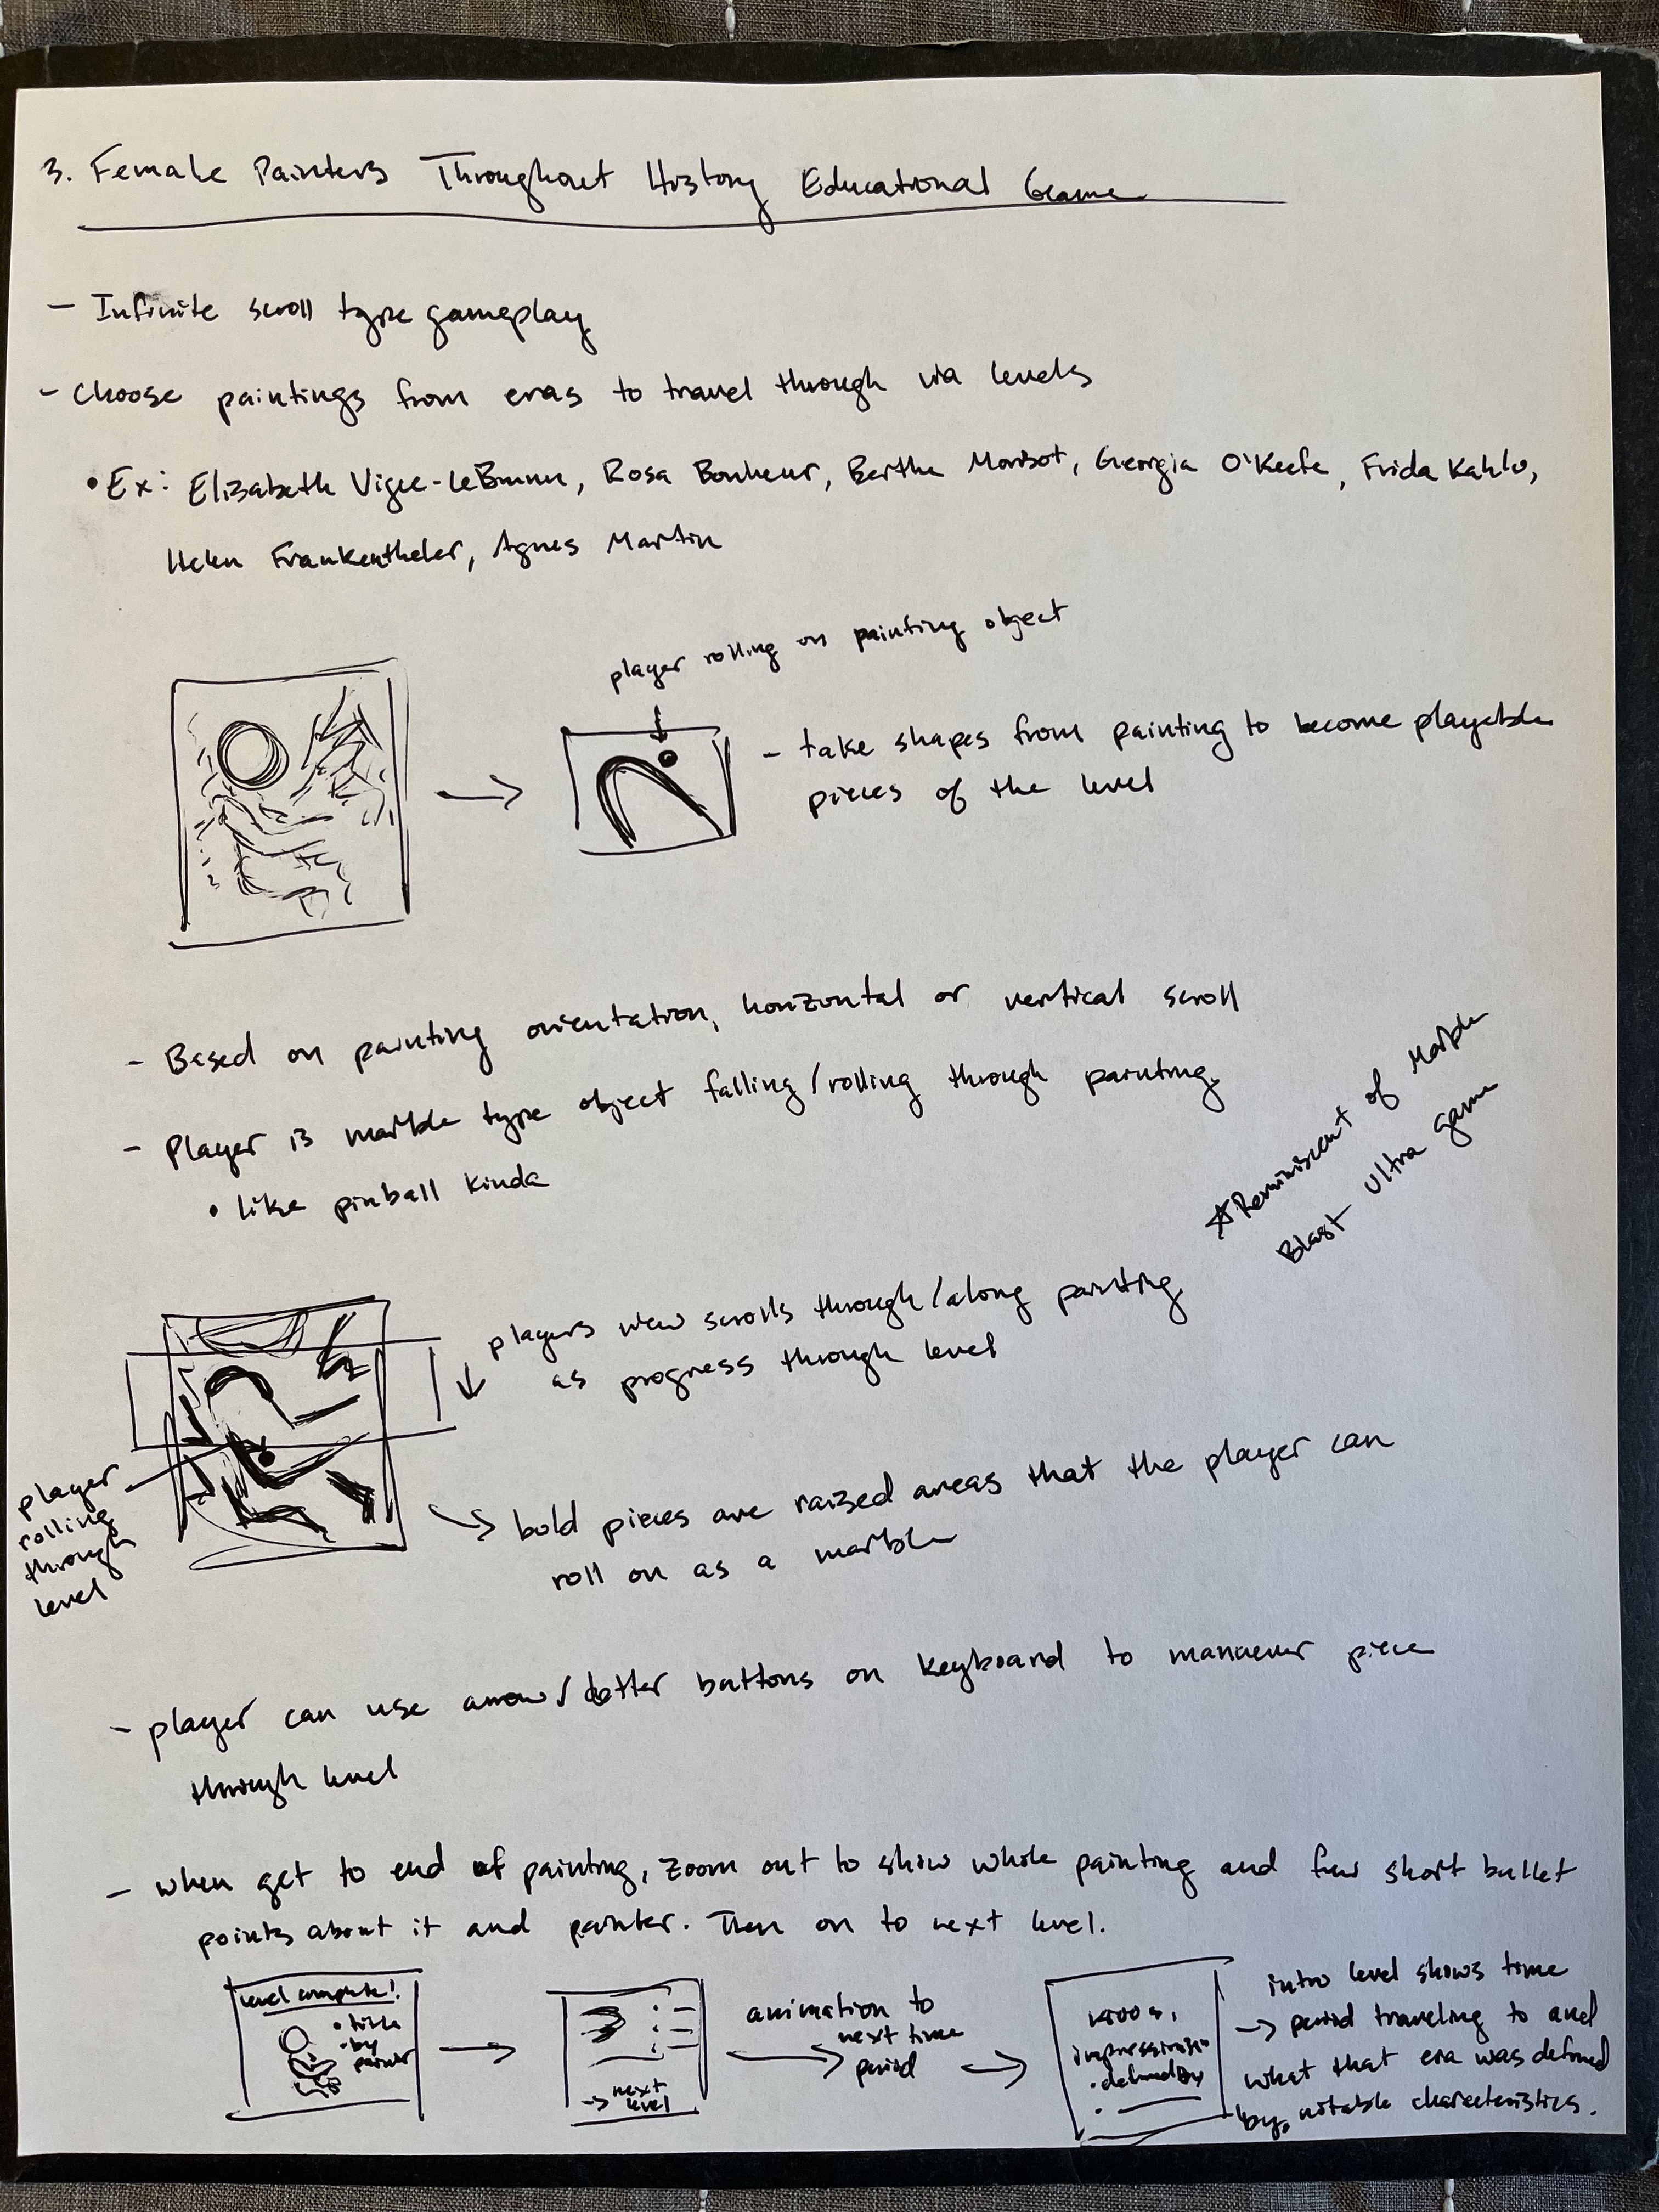 3. Female Painters Throughout History Educational Game
- Infinite scroll type gameplay
- Choose paintings from eras to travel through via levels
• Ex: Elizabeth Vigee-LeBrunn, Rosa Bonheur, Berthe Morisot, Georgia O'Keefe, Frida Kahlo,
Helen Frankentheler, Agnes Martin
player rolling on painting object
- take shapes from painting to become playable
pieces of the level
- Based on painting orientation, horizontal or vertical scroll
- Player is marble type object falling/rolling through painting
• like pinball kinda
☆Reminiscent of Marble
Blast Ultra game
players view scrolls through/along painting
as progress through level
player
rolling
through
level
bold pieces are raised areas that the player can
roll on as a marble
- player can use arrow/letter buttons on keyboard to manuever piece
through level
- when get to end of painting, zoom out to show whole painting and few short bullet
points about it and painter. Then on to next level.
level complete!
• title
• by
painter
→ next
level
animation to
next time
period
impressionism
• defined by
intro level shows time
→ period traveling to and
what that era was defined
by, notable characteristics.